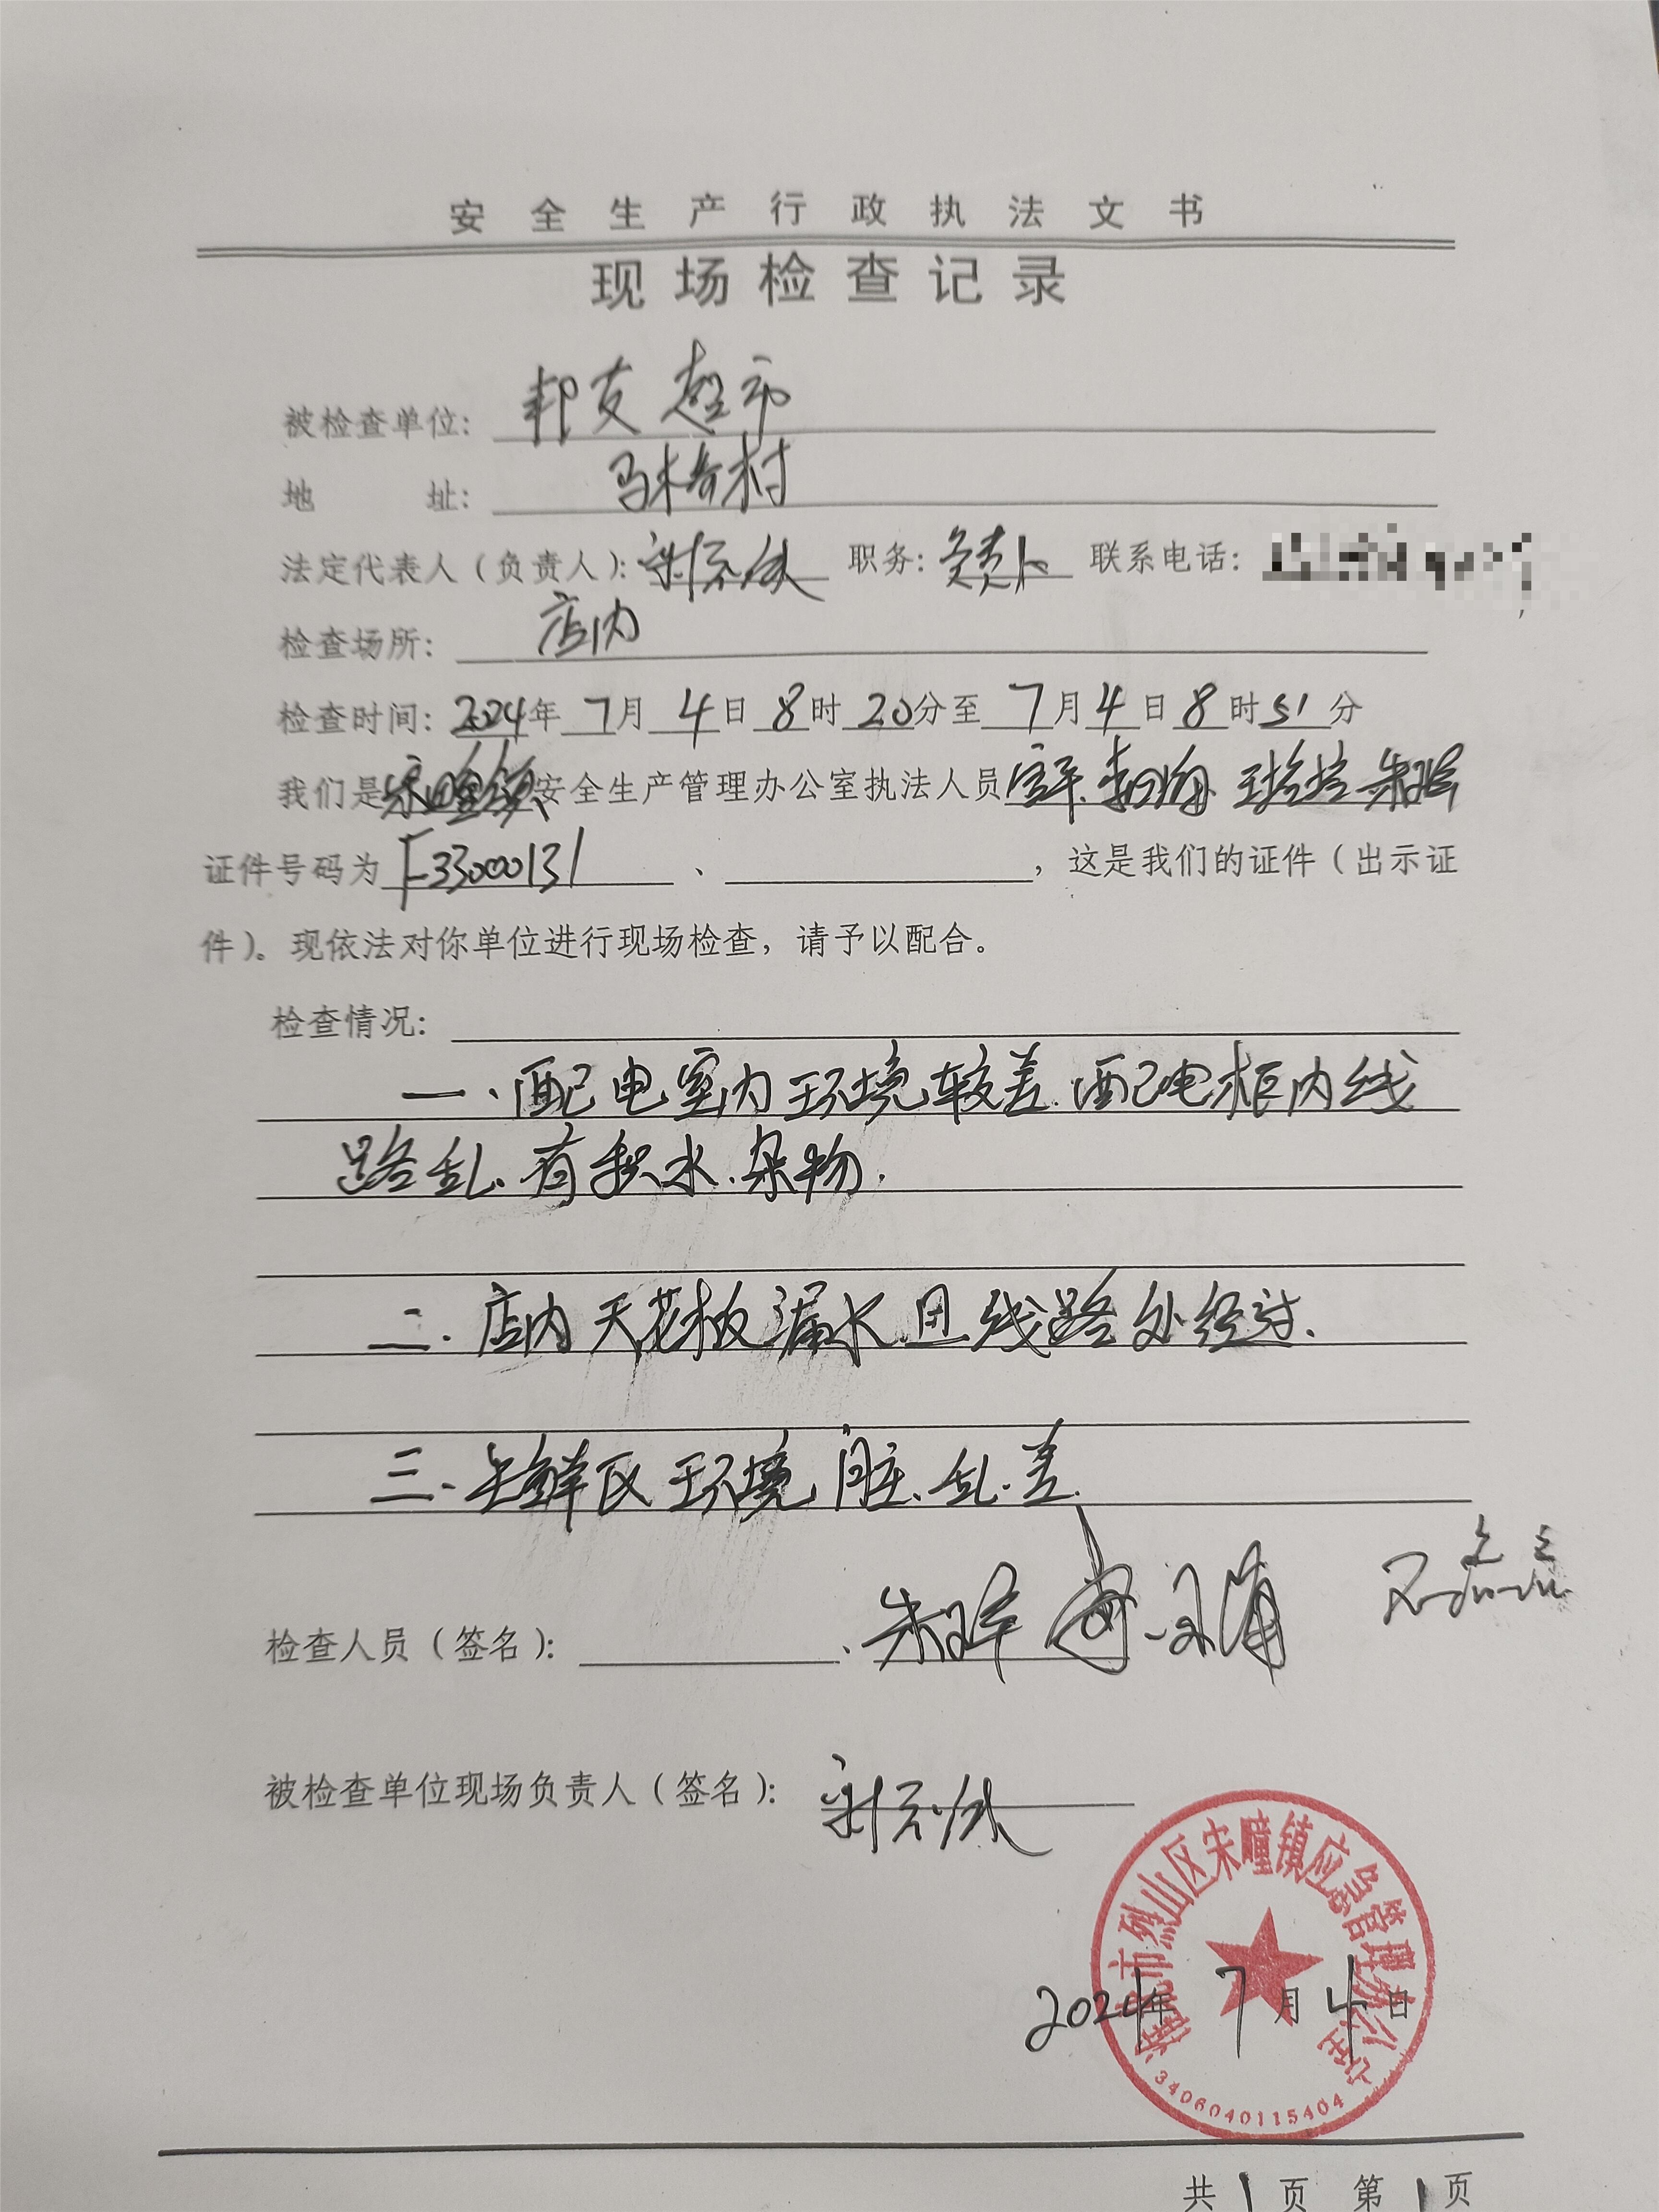 安全生产行政执法文书
现场检查记录
被检查单位: 邦友超市
地 址: 马桥村
法定代表人（负责人）: 职务: 负责人 联系电话:
检查场所: 店内
检查时间: 2024年7月4日8时20分至7月4日8时51分
我们是宋疃镇安全生产管理办公室执法人员
证件号码为 F33000131 、 ，这是我们的证件（出示证
件）。现依法对你单位进行现场检查，请予以配合。
检查情况:
一、配电室内环境较差.配电柜内线
路乱、有积水.杂物.
二.店内天花板漏水且线路处经过.
三、生鲜区环境脏、乱、差.
检查人员（签名）: 、
被检查单位现场负责人（签名）:
淮北市烈山区宋疃镇应急管理办公室
2024年7月4日
3406040115404
共1页 第1页